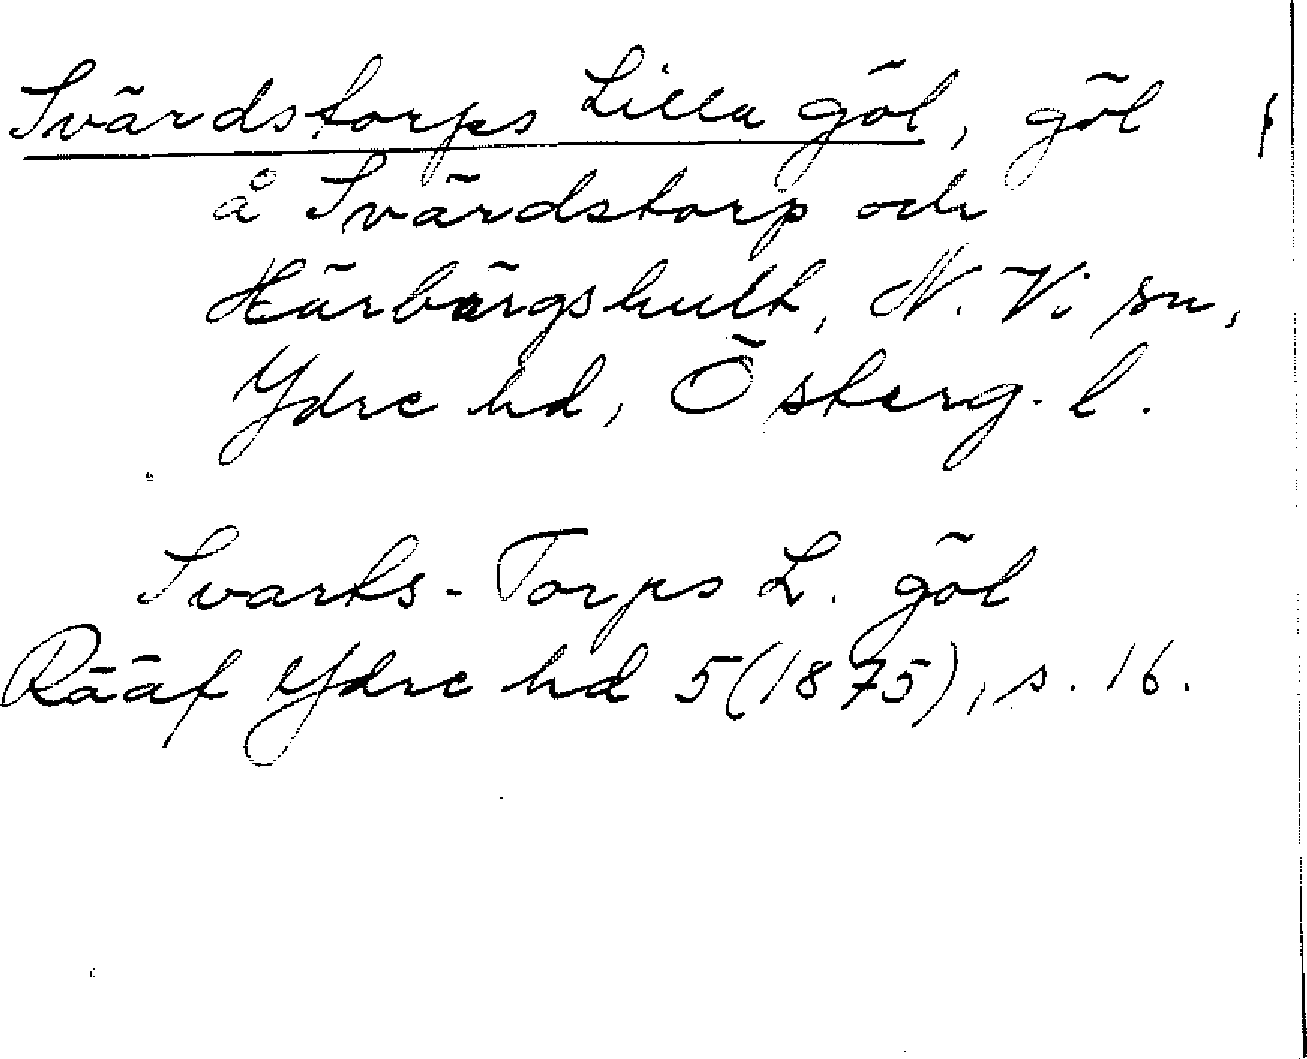 Svärdstorps Lilla göl, göl
å Svärdstorp och
Härbärgshult, N. Vi sn,
Ydre hd, Österg. l.
Svarks-Torps L. göl
Rääf Ydre hd 5 (1875), s. 16.